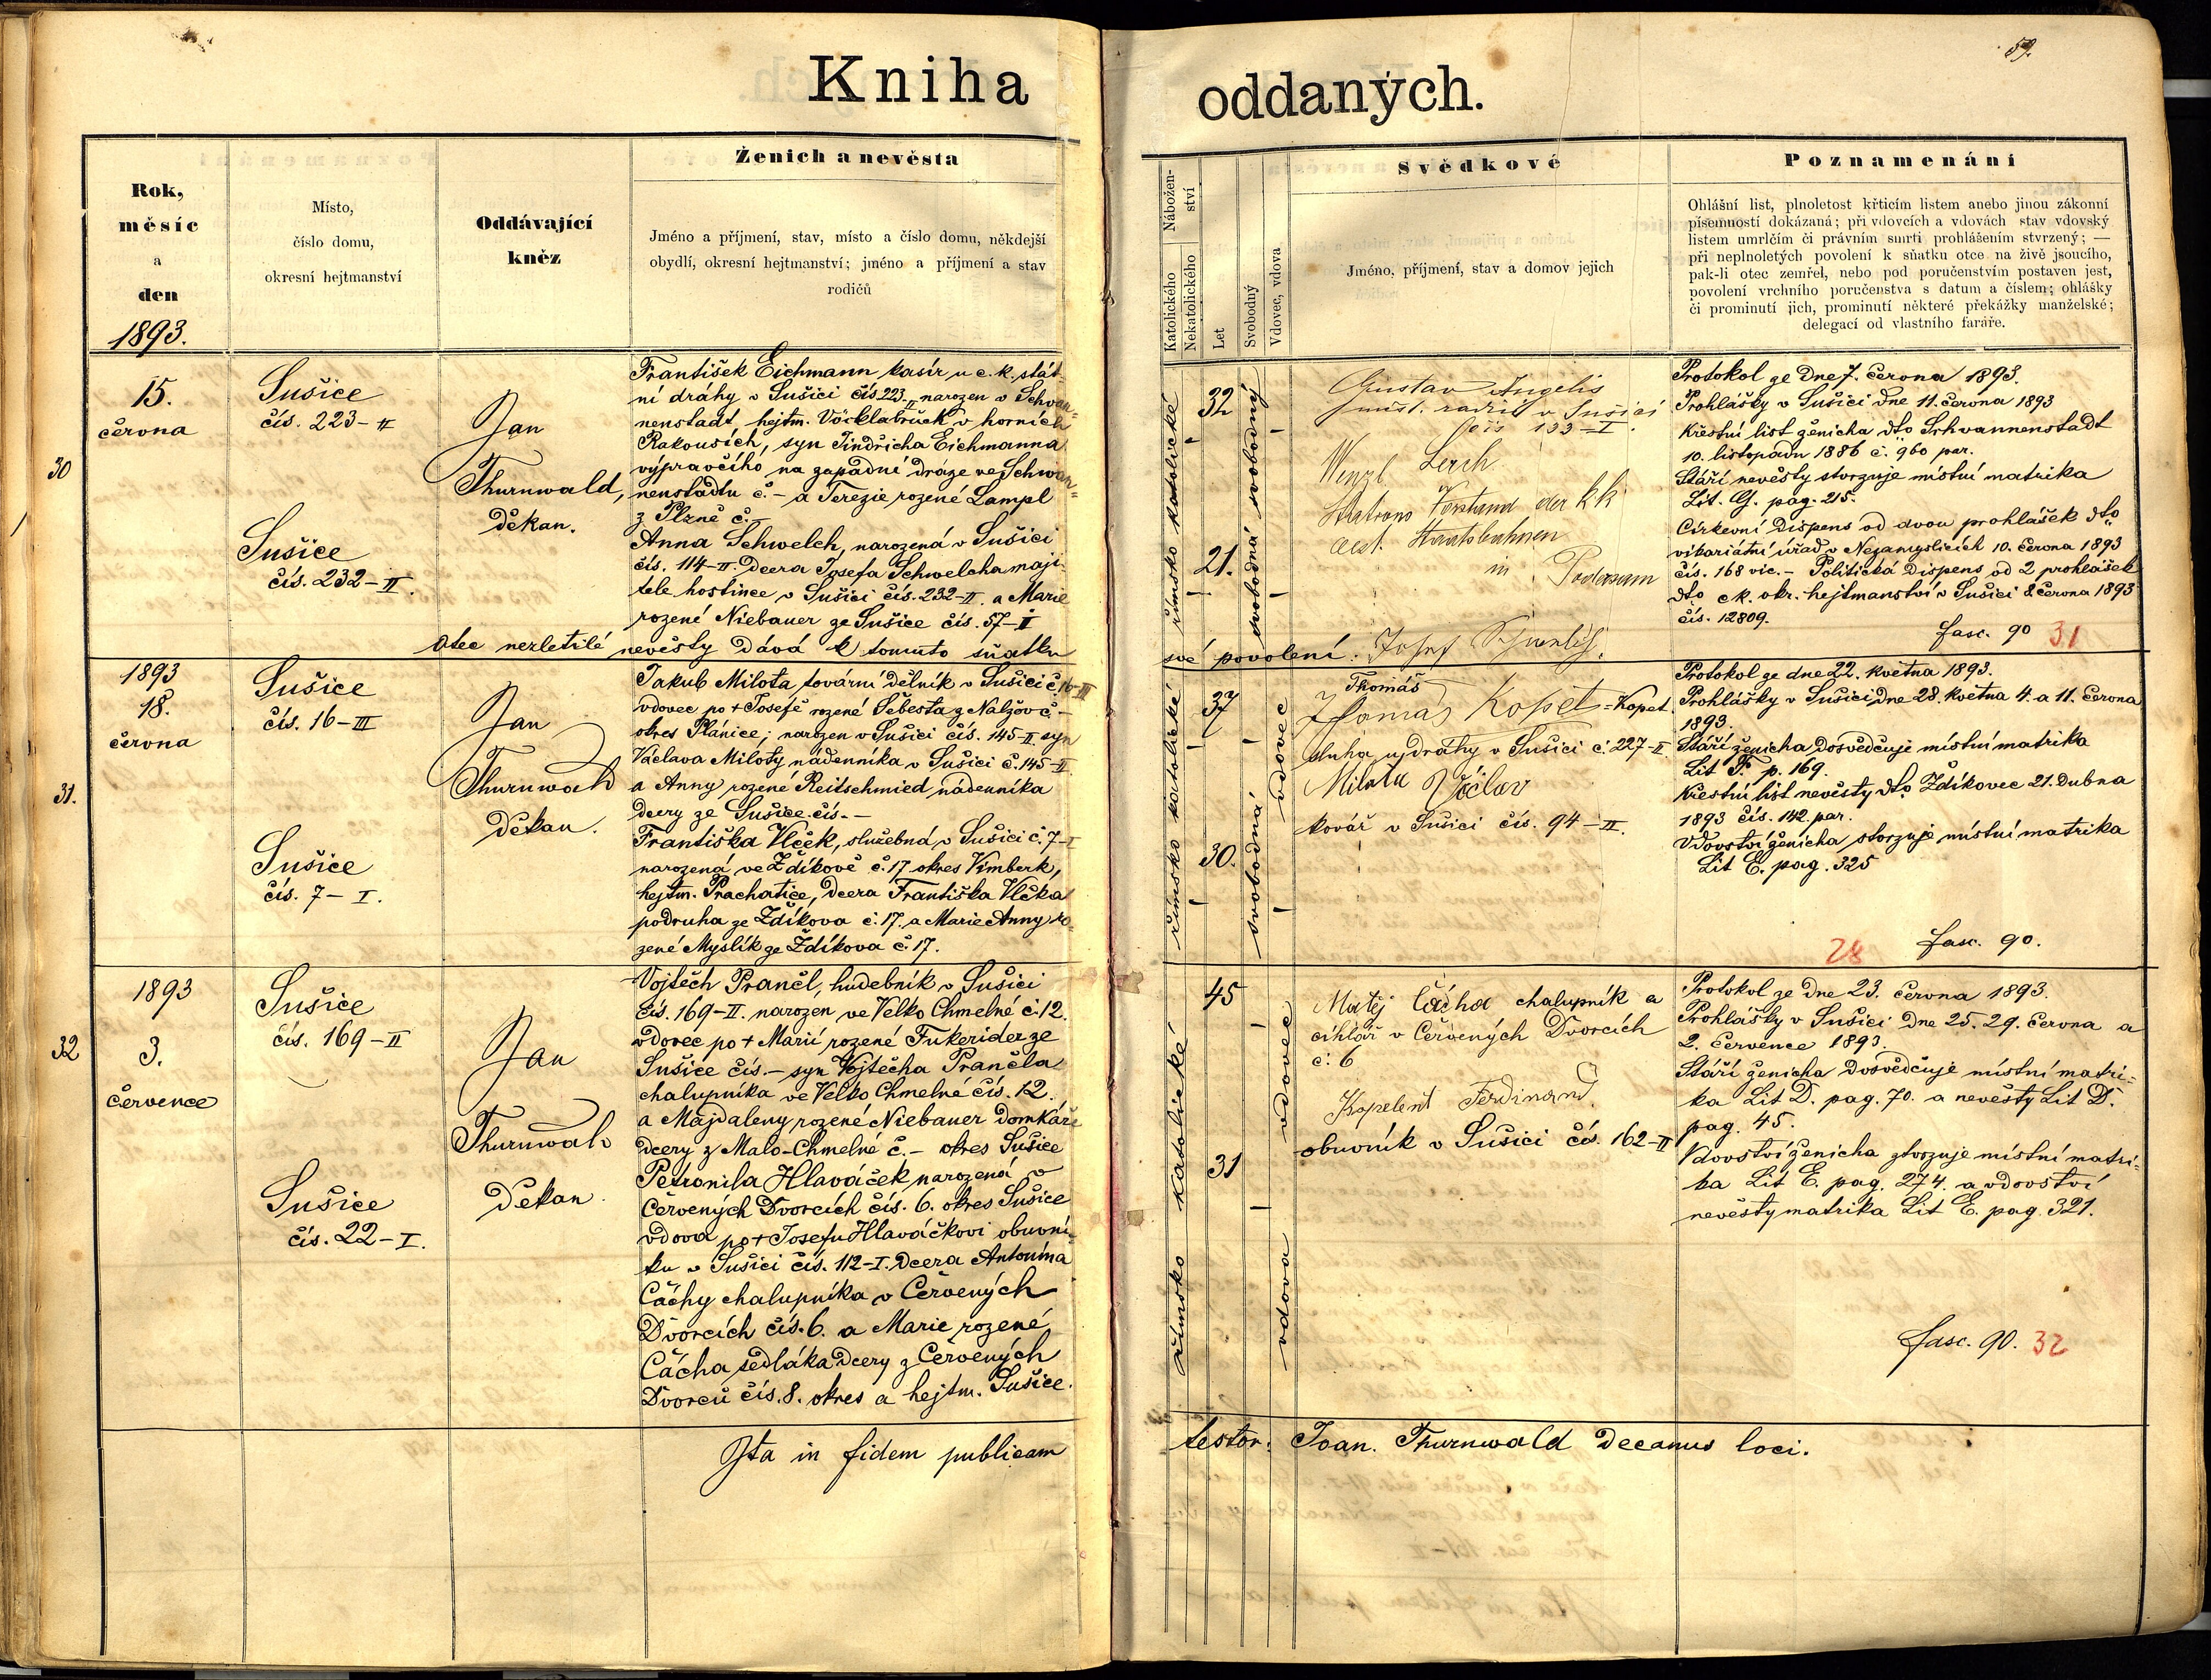 59.
Kniha oddaných.
Rok,
měsíc
a
den
1893.
Místo,
číslo domu,
okresní hejtmanství
Oddávající
kněz
Ženich a nevěsta
Jméno a příjmení, stav, místo a číslo domu, někdejší
obydlí, okresní hejtmanství; jméno a příjmení a stav
rodičů
Nábožen-
ství
Katolického
Nekatolického
Let
Svobodný
Vdovec, vdova
Svědkové
Jméno, příjmení, stav a domov jejich
Poznamenání
Ohlášní list, plnoletost křticím listem anebo jinou zákonní
písemností dokázaná; při vdovcích a vdovách stav vdovský
listem umrlčím či právním smrti prohlášením stvrzený; —
při neplnoletých povolení k sňatku otce na živě jsoucího,
pak-li otec zemřel, nebo pod poručenstvím postaven jest,
povolení vrchního poručenstva s datum a číslem; ohlášky
či prominutí jich, prominutí některé překážky manželské;
delegací od vlastního faráře.
30
15.
června
Sušice
čís. 223-II
Sušice
čís. 232-II.
Jan
Thurnwald,
děkan.
František Eichmann kasír u c. k. stát-
ní dráhy v Sušici čís 223-II narozen v Schwan=
nenstadt, hejtm. Vöcklabruck v horních
Rakousích, syn Jindřicha Eichmanna
výpravčího na západní dráze ve Schwan=
nenstadtu č. - a Terezie rozené Lampl
z Plzně č. -
Anna Schwelch, narozená v Sušici
čís. 114-II. dcera Josefa Schwelcha maji-
tele hostince v Sušici čís. 232-II. a Marie
rozené Niebauer ze Sušice čís. 57-II
otec nezletilé nevěsty dává k tomuto sňatku
své povolení: Josef Schwelch.
římsko katolické
32
21.
svobodný
svobodná
Gustav Angelis
měst. radní v Sušici
čís 133-I.
Wenzl Lerch
Stations Vorstand der kk
oest. Staatsbahnen
in Podersam
Protokol ze dne 7. června 1893.
Prohlášky v Sušici dne 11. června 1893
Křestní list ženicha dto Schwannenstadt
10. listopadu 1886 č. 960 par.
Stáří nevěsty stvrzuje místní matrika
Lit. G. pag. 215.
Církevní dispens od dvou prohlášek dto
vikariátní úřad v Nezamyslicích 10. června 1893
čís. 168 vic. - Politická dispens od 2 prohlášek
dto c. k. okr. hejtmanství v Sušici 8. června 1893
čís. 12809.
fasc. 90 31
31.
1893
18.
června
Sušice
čís. 16-III
Sušice
čís. 7-I.
Jan
Thurnwald
děkan.
Jakub Milota, tovární dělník v Sušici č. 16-III
vdovec po + Josefě rozené Šebesta z Nalžov č -
okres Plánice; narozen v Sušici čís. 145-II. syn
Václava Miloty nádenníka v Sušici č. 145-II.
a Anny rozené Reitschmied nádenníka
dcery ze Sušice čís. -
Františka Vlček, služebná v Sušici č. 7-I
narozená ve Zdíkově č. 17 okres Vimberk,
hejtm. Prachatice, dcera Františka Vlčka
podruha ze Zdíkova č. 17. a Marie Anny ro-
zené Myslík ze Zdíkova č. 17.
římsko katolické
37
30.
vdovec
svobodná
Thomáš
Thomas Kopet = Kopet
sluha u dráhy v Sušici č. 227-II
Milota Václav
kovář v Sušici čís. 94-II.
Protokol ze dne 22. května 1893.
Prohlášky v Sušici dne 28. května 4. a 11. června
1893.
Stáří ženicha dosvědčuje místní matrika
Lit F. p. 169.
Křestní list nevěsty dto Zdíkovec 21. dubna
1893 čís. 142. par.
Vdovství ženicha stvrzuje místní matrika
Lit E. pag. 325
28 fasc. 90.
32
1893
3.
července
Sušice
čís. 169-II
Sušice
čís. 22-I.
Jan
Thurnwald
děkan.
Vojtěch Prančl, hudebník v Sušici
čís. 169-II. narozen ve Velko Chmelné č. 12.
vdovec po + Marii rozené Fukerider ze
Sušice čís. - syn Vojtěcha Prančla
chalupníka ve Velko Chmelné čís. 12.
a Majdaleny rozené Niebauer domkáře
dcery z Malo-Chmelné č. - okres Sušice
Petronila Hlaváček narozená v
Červených Dvorcích čís. 6. okres Sušice
vdova po + Josefu Hlaváčkovi obuvní-
ku v Sušici čís. 112-I. dcera Antonína
Čáchy chalupníka v Červených
Dvorcích čís. 6. a Marie rozené
Čácha sedláka dcery z Červených
Dvorců čís. 8. okres a hejtm. Sušice.
římsko katolické
45
31
vdovec
vdova
Matěj Čácha chalupník a
cihlář v Červených Dvorcích
č. 6
Kopelent Ferdinand
obuvník v Sušici čís. 162-II
Protokol ze dne 23. června 1893.
Prohlášky v Sušici dne 25. 29. června a
2. července 1893.
Stáří ženicha dosvědčuje místní matri-
ka Lit D. pag. 70. a nevěsty Lit D.
pag. 45.
Vdovství ženicha stvrzuje místní matri-
ka Lit E. pag. 274. a vdovství
nevěsty matrika Lit E. pag. 321.
fasc. 90. 32
Ita in fidem publicam testor: Joan. Thurnwald decanus loci.